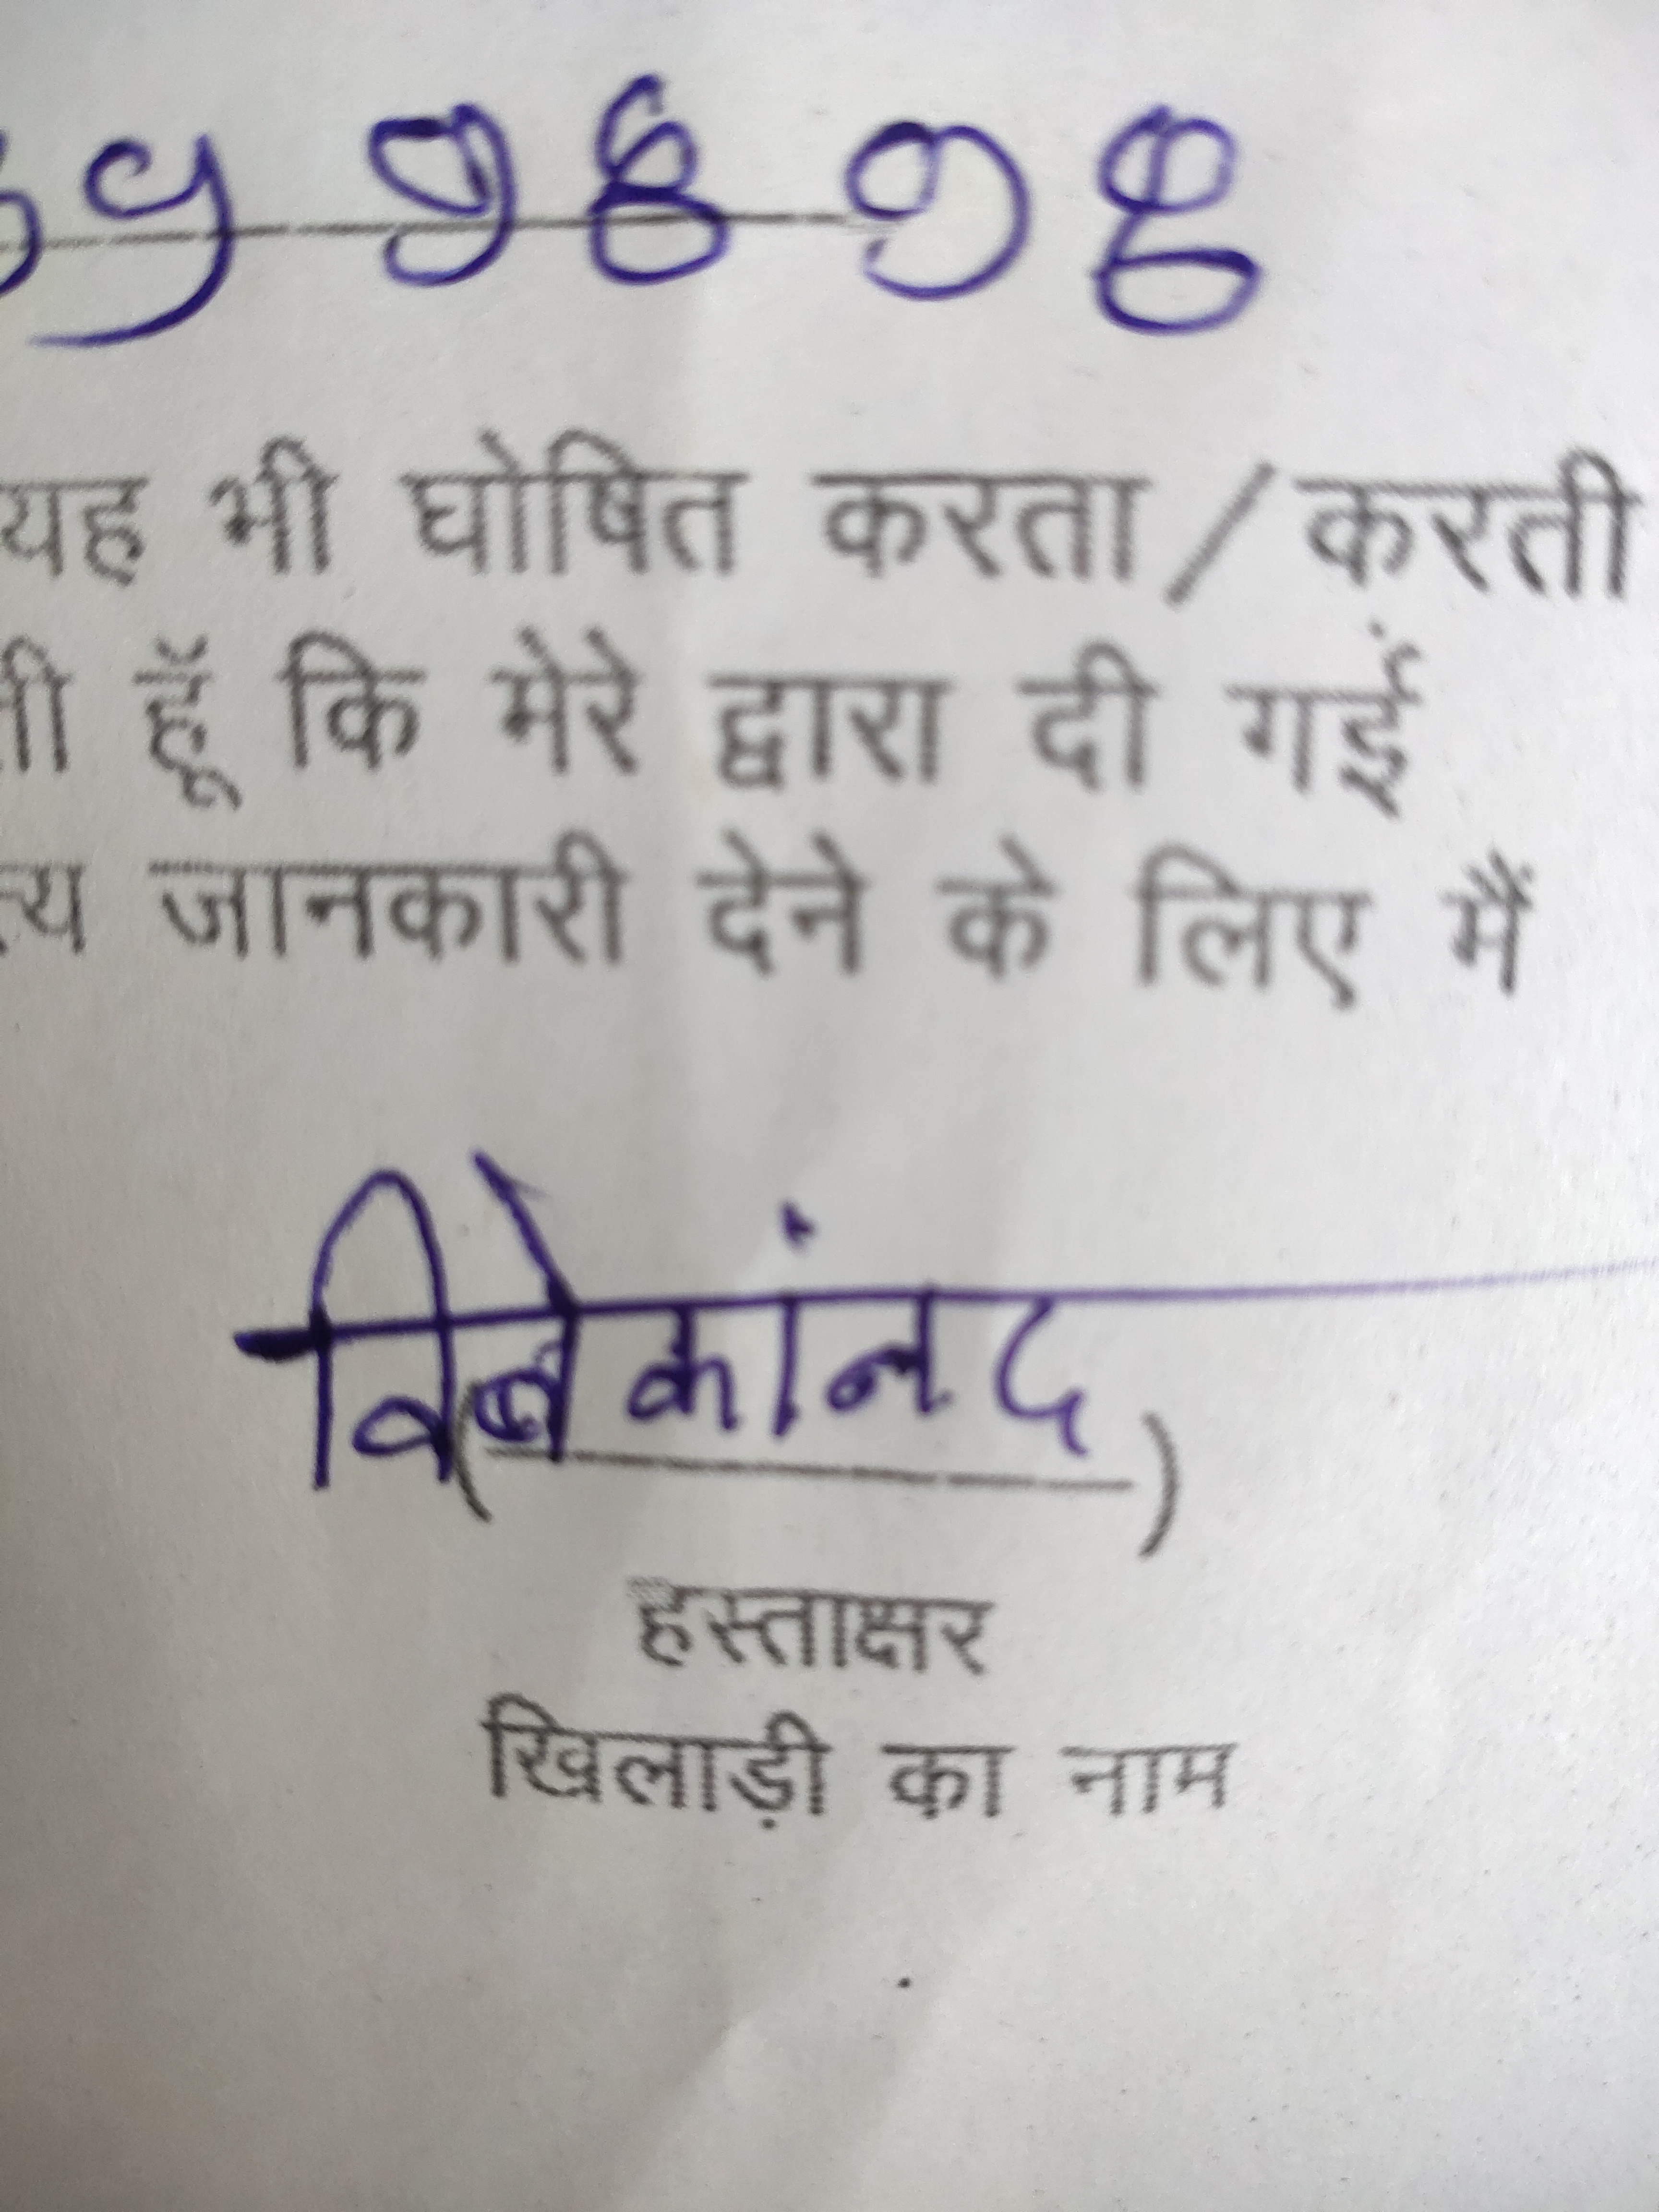 9898
यह भी घोषित करता / करती
हूँ कि मेरे द्वारा दी गई
जानकारी देने के लिए मैं
विवेकांनद
( )
हस्ताक्षर
खिलाड़ी का नाम